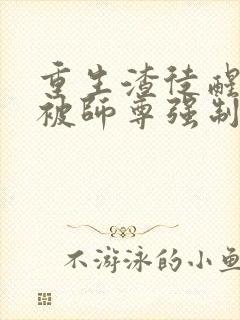 重生渣徒醒
被師尊强制
不游泳的小鱼